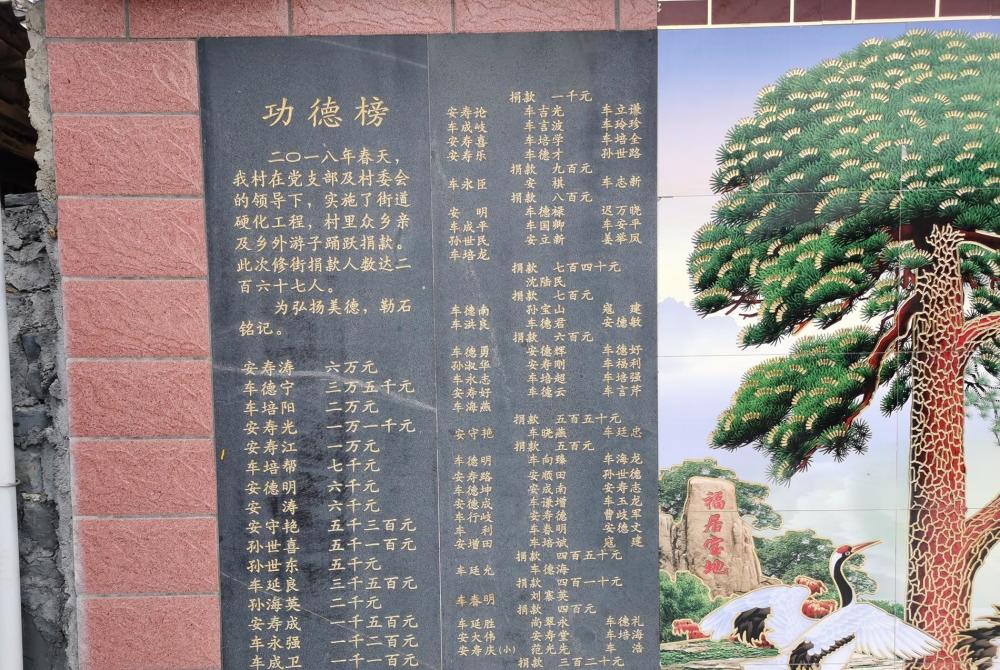 功德榜
二〇一八年春天，
我村在党支部及村委会
的领导下，实施了街道
硬化工程，村里众乡亲
及乡外游子踊跃捐款。
此次修街捐款人数达二
百六十七人。
为弘扬美德，勒石
铭记。
安寿涛 六万元
车德宁 三万五千元
车培阳 二万元
安寿光 一万一千元
安寿江 一万元
车培帮 七千元
安德明 六千元
安 涛 六千元
安守艳 五千三百元
孙世喜 五千一百元
孙世东 五千元
车延良 三千五百元
孙海英 二千元
安寿成 一千五百元
车永强 一千二百元
车成卫 一千一百元
捐款 一千元
安寿抡 车吉光 车立谦
车成岐 车言波 车玲珍
安寿喜 车培学 车培全
安寿乐 车德才 孙世路
捐款 九百元
车永臣 安 棋 车志新
捐款 八百元
安 明 车德禄 迟万晓
车成平 车国卿 车安平
孙世民 安立新 姜举凤
车培龙
捐款 七百四十元
沈陆民
捐款 七百元
车德南 孙宝山 寇 建
车洪良 车德君 安德敏
捐款 六百元
车德勇 安德辉 车德好
孙淑华 安寿刚 车福利
车永志 车培超 车培强
安寿好 车德云 车言芹
车海燕
捐款 五百五十元
安守艳 车晓燕 车廷忠
捐款 五百元
车德明 车向臻 车海龙
安寿路 安顺田 孙世德
车德坤 安成南 安寿志
安德成 车谦增 车玉龙
车行岐 安寿德 曹歧军
车 利 车春明 安德文
安增田 车培斌 寇 建
捐款 四百五十元
车延允 车德海
捐款 四百一十元
车春明 刘寨英
捐款 四百元
车延胜 尚翠永 车德礼
安大伟 安寿堂 车培海
安寿庆(小) 范光先 车 浩
捐款 三百二十元
福居宝地